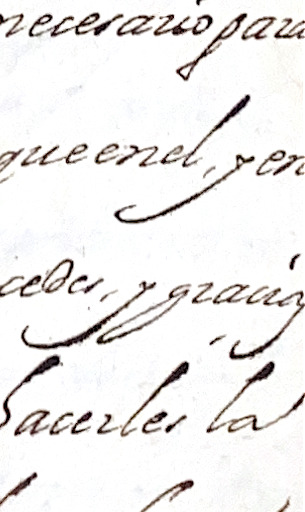 necesario para
que en el, y en
cedes, y gracia
hacerles la